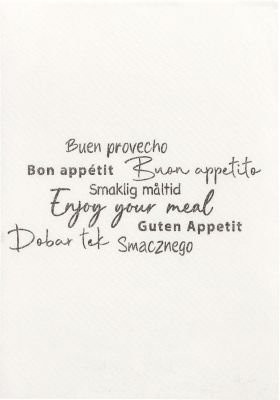 Buen provecho
Bon appétit Buon appetito
Smaklig måltid
Enjoy your meal
Guten Appetit
Dobar tek Smacznego